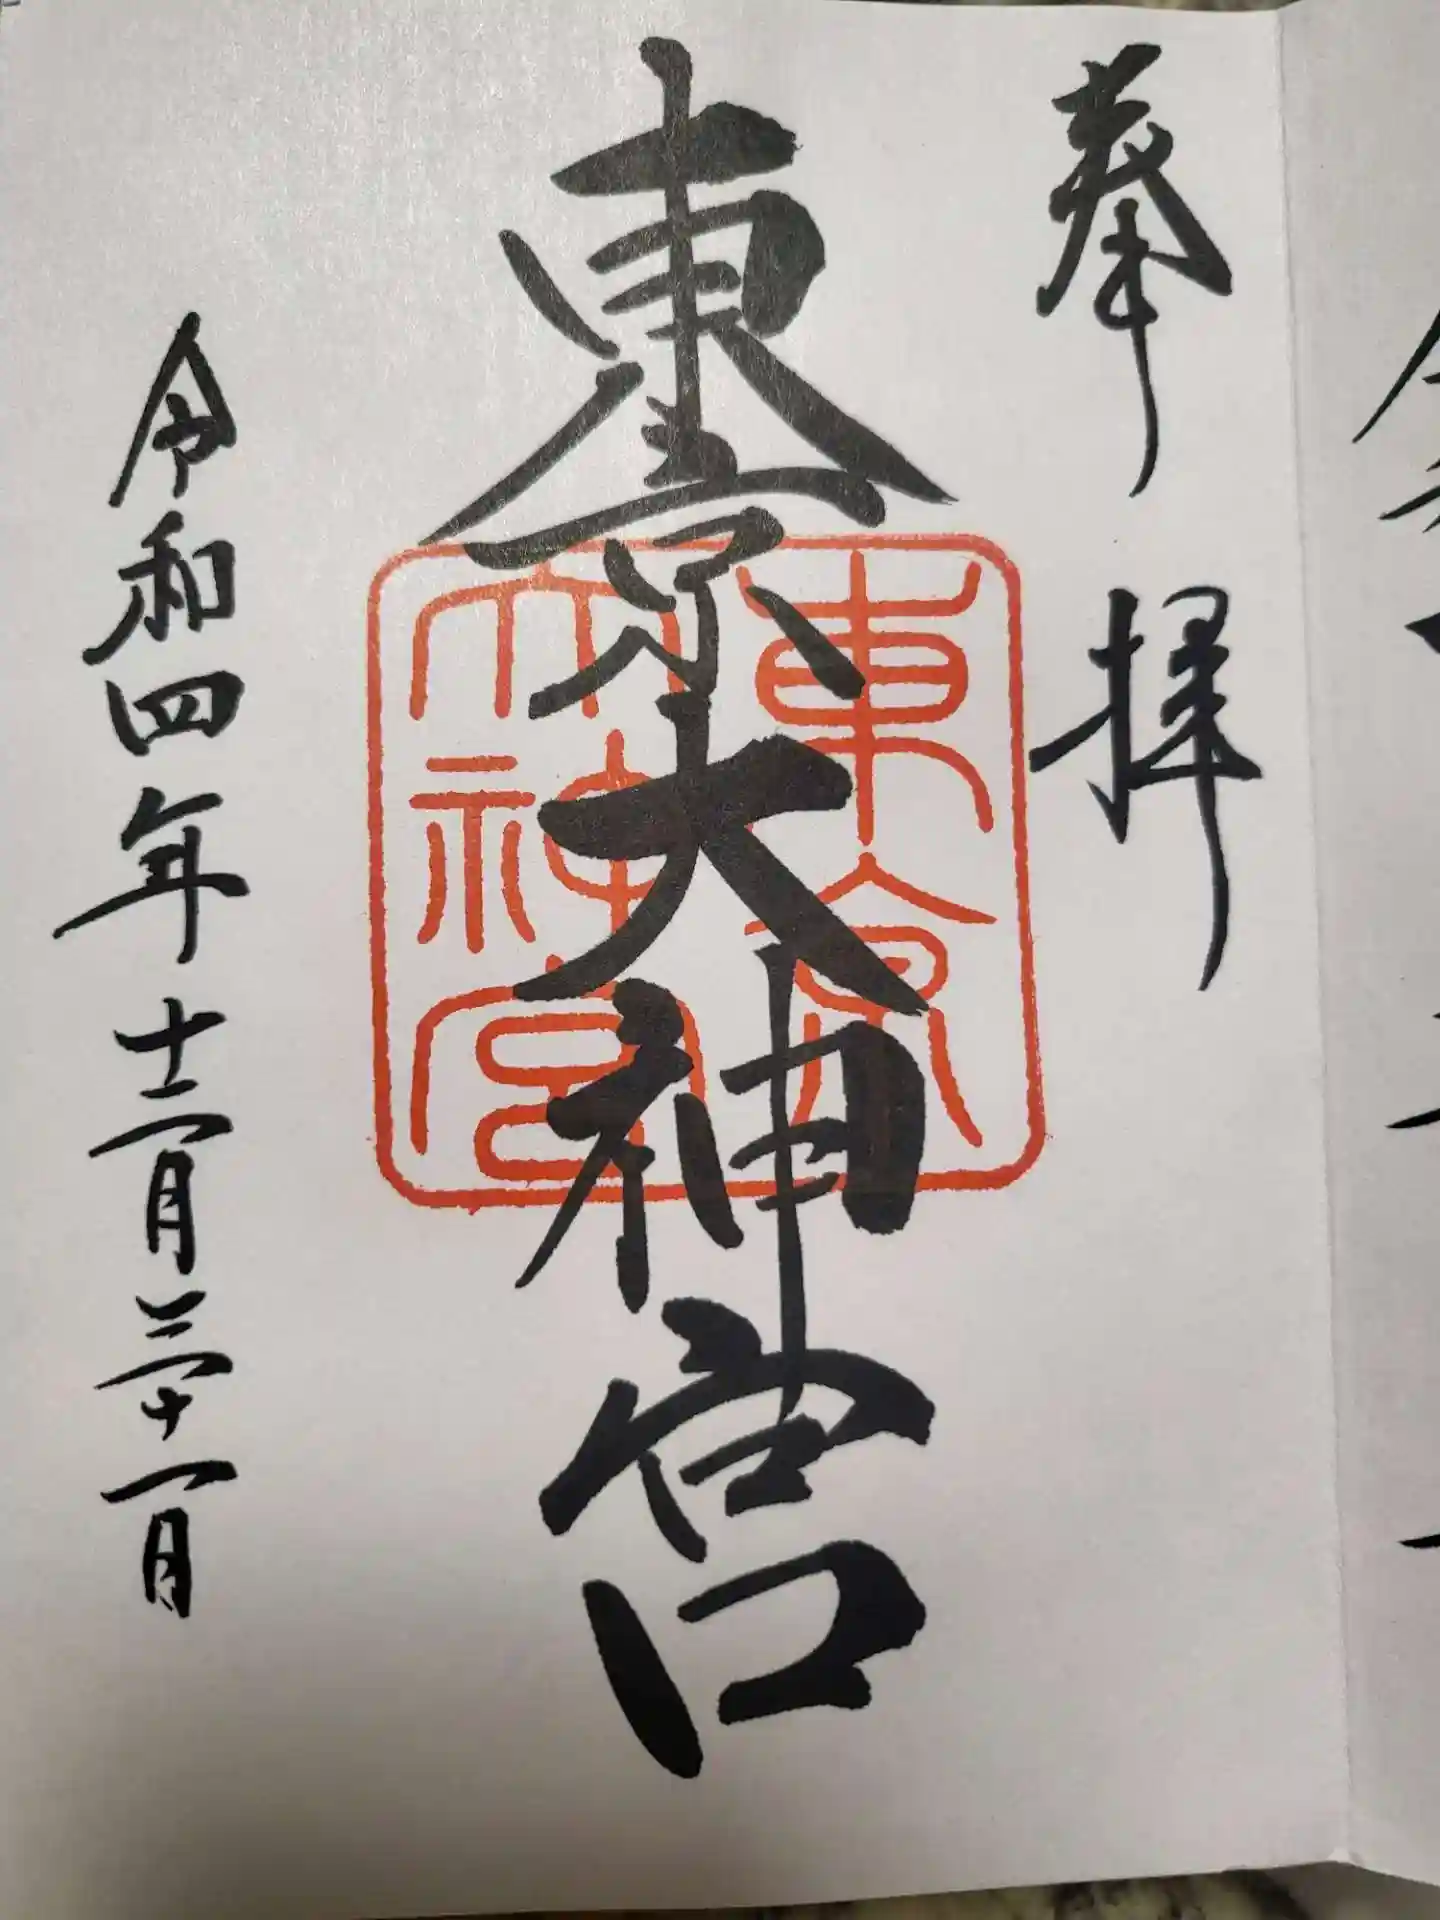 奉拝
東京大神宮
令和四年十二月三十一日
東京
大神宮